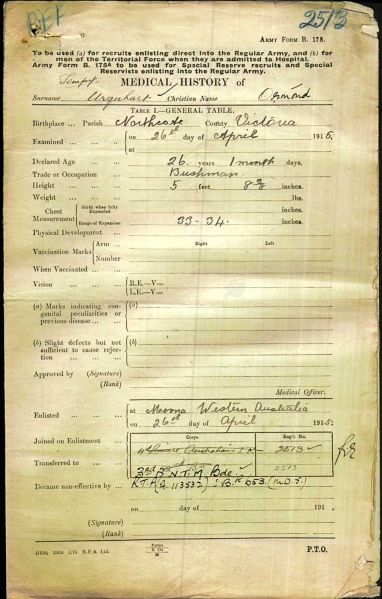 BEF
2513
ARMY FORM B. 178.
To be used (a) for recruits enlisting direct into the Regular Army, and (b) for
men of the Territorial Force when they are admitted to Hospital.
Army Form B. 178A to be used for Special Reserve recruits and Special
Reservists enlisting into the Regular Army.
Tempy MEDICAL HISTORY of
Surname Urquhart Christian Name Ormond
TABLE I.—GENERAL TABLE.
Birthplace ... Parish Northcote County Victoria
Examined ... on 26th day of April 1915,
at
Declared Age ... 26 years 1 month days.
Trade or Occupation ... Bushman.
Height ... 5 feet 8 inches.
Weight ... lbs.
Chest Measurement Girth when fully Expanded inches.
Range of Expansion 33-34. inches.
Physical Development ...
Vaccination Marks Arm ... Right Left
Number
When Vaccinated ...
Vision ... R.E.—V—
L.E.—V—
(a) Marks indicating congenital peculiarities or previous disease ... (a)
(b) Slight defects but not sufficient to cause rejection ... (b)
Approved by (Signature)
(Rank)
Medical Officer.
Enlisted ... at Western Australia
on 26th day of April 1915,
Corps. Regtl. No.
Joined on Enlistment ... 2513
Transferred to ... 3rd Bde. 2513
Became non-effective by ...
on day of 191 .
(Signature)
(Rank)
Forms B. 178
P.T.O.